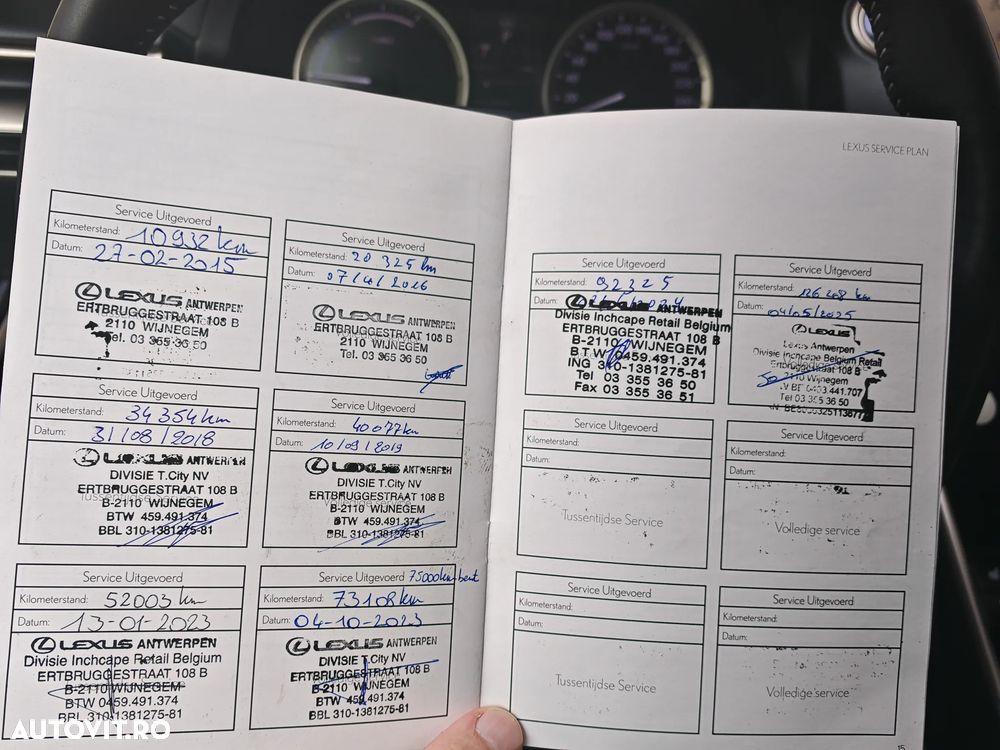 Service Uitgevoerd
Kilometerstand: 10932 km
Datum: 27-02-2015
LEXUS ANTWERPEN
ERTBRUGGESTRAAT 108 B
2110 WIJNEGEM
Tel. 03 365 36 50
Service Uitgevoerd
Kilometerstand: 20 325 km
Datum: 07/4/2016
LEXUS ANTWERPEN
ERTBRUGGESTRAAT 108 B
2110 WIJNEGEM
Tel. 03 365 36 50
Service Uitgevoerd
Kilometerstand: 34 354 km
Datum: 31/08/2018
LEXUS ANTWERPEN
DIVISIE T.City NV
ERTBRUGGESTRAAT 108 B
B-2110 WIJNEGEM
BTW 459.491.374
BBL 310-1381275-81
Service Uitgevoerd
Kilometerstand: 40077 km
Datum: 10/09/2019
LEXUS ANTWERPEN
DIVISIE T.City NV
ERTBRUGGESTRAAT 108 B
B-2110 WIJNEGEM
BTW 459.491.374
BBL 310-1381275-81
Service Uitgevoerd
Kilometerstand: 52003 km
Datum: 13-01-2023
LEXUS ANTWERPEN
Divisie Inchcape Retail Belgium
ERTBRUGGESTRAAT 108 B
B-2110 WIJNEGEM
BTW 0459.491.374
BBL 310-1381275-81
Service Uitgevoerd 75000km
Kilometerstand: 73108 km
Datum: 04-10-2023
LEXUS ANTWERPEN
DIVISIE T.City NV
ERTBRUGGESTRAAT 108 B
B-2110 WIJNEGEM
BTW 459.491.374
BBL 310-1381275-81
LEXUS SERVICE PLAN
Service Uitgevoerd
Kilometerstand: 92325
Datum:
LEXUS ANTWERPEN
Divisie Inchcape Retail Belgium
ERTBRUGGESTRAAT 108 B
B-2110 WIJNEGEM
BTW 0459.491.374
ING 310-1381275-81
Tel 03 355 36 50
Fax 03 355 36 51
Service Uitgevoerd
Kilometerstand: 126 248 km
Datum: 04/05/2025
LEXUS
Lexus Antwerpen
Divisie Inchcape Belgium Retail
Ertbruggestraat 108 B
2110 Wijnegem
Tel 03 355 36 50
Service Uitgevoerd
Kilometerstand:
Datum:
Tussentijdse Service
Service Uitgevoerd
Kilometerstand:
Datum:
Volledige service
Service Uitgevoerd
Kilometerstand:
Datum:
Tussentijdse Service
Service Uitgevoerd
Kilometerstand:
Datum:
Volledige service
15
AUTOVIT.RO